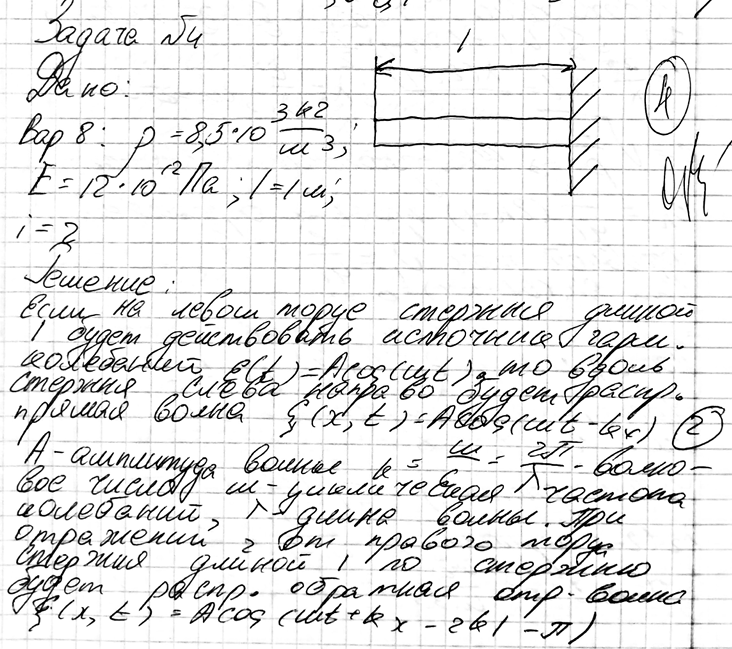 Задача №4
l
Дано:
4
Вар 8: ρ = 8,5·10³ кг/м³;
E = 12·10¹² Па; l = 1 м;
i = 2
Решение:
если на левом торце стержня длиной
l будет действовать источник гарм.
колебаний ξ(t) = A cos(ωt), то вдоль
стержня слева направо будет распр.
прямая волна ξ(x, t) = A cos(ωt - kx) (2)
A - амплитуда волны k = ω/c = 2π/λ - волно-
вое число ω - циклическая частота
колебаний, λ - длина волны. При
отражении от правого торца
стержня длиной l по стержню
будет распр. обратная отр. волна
ξ(x, t) = A cos(ωt + kx - 2kl - π)